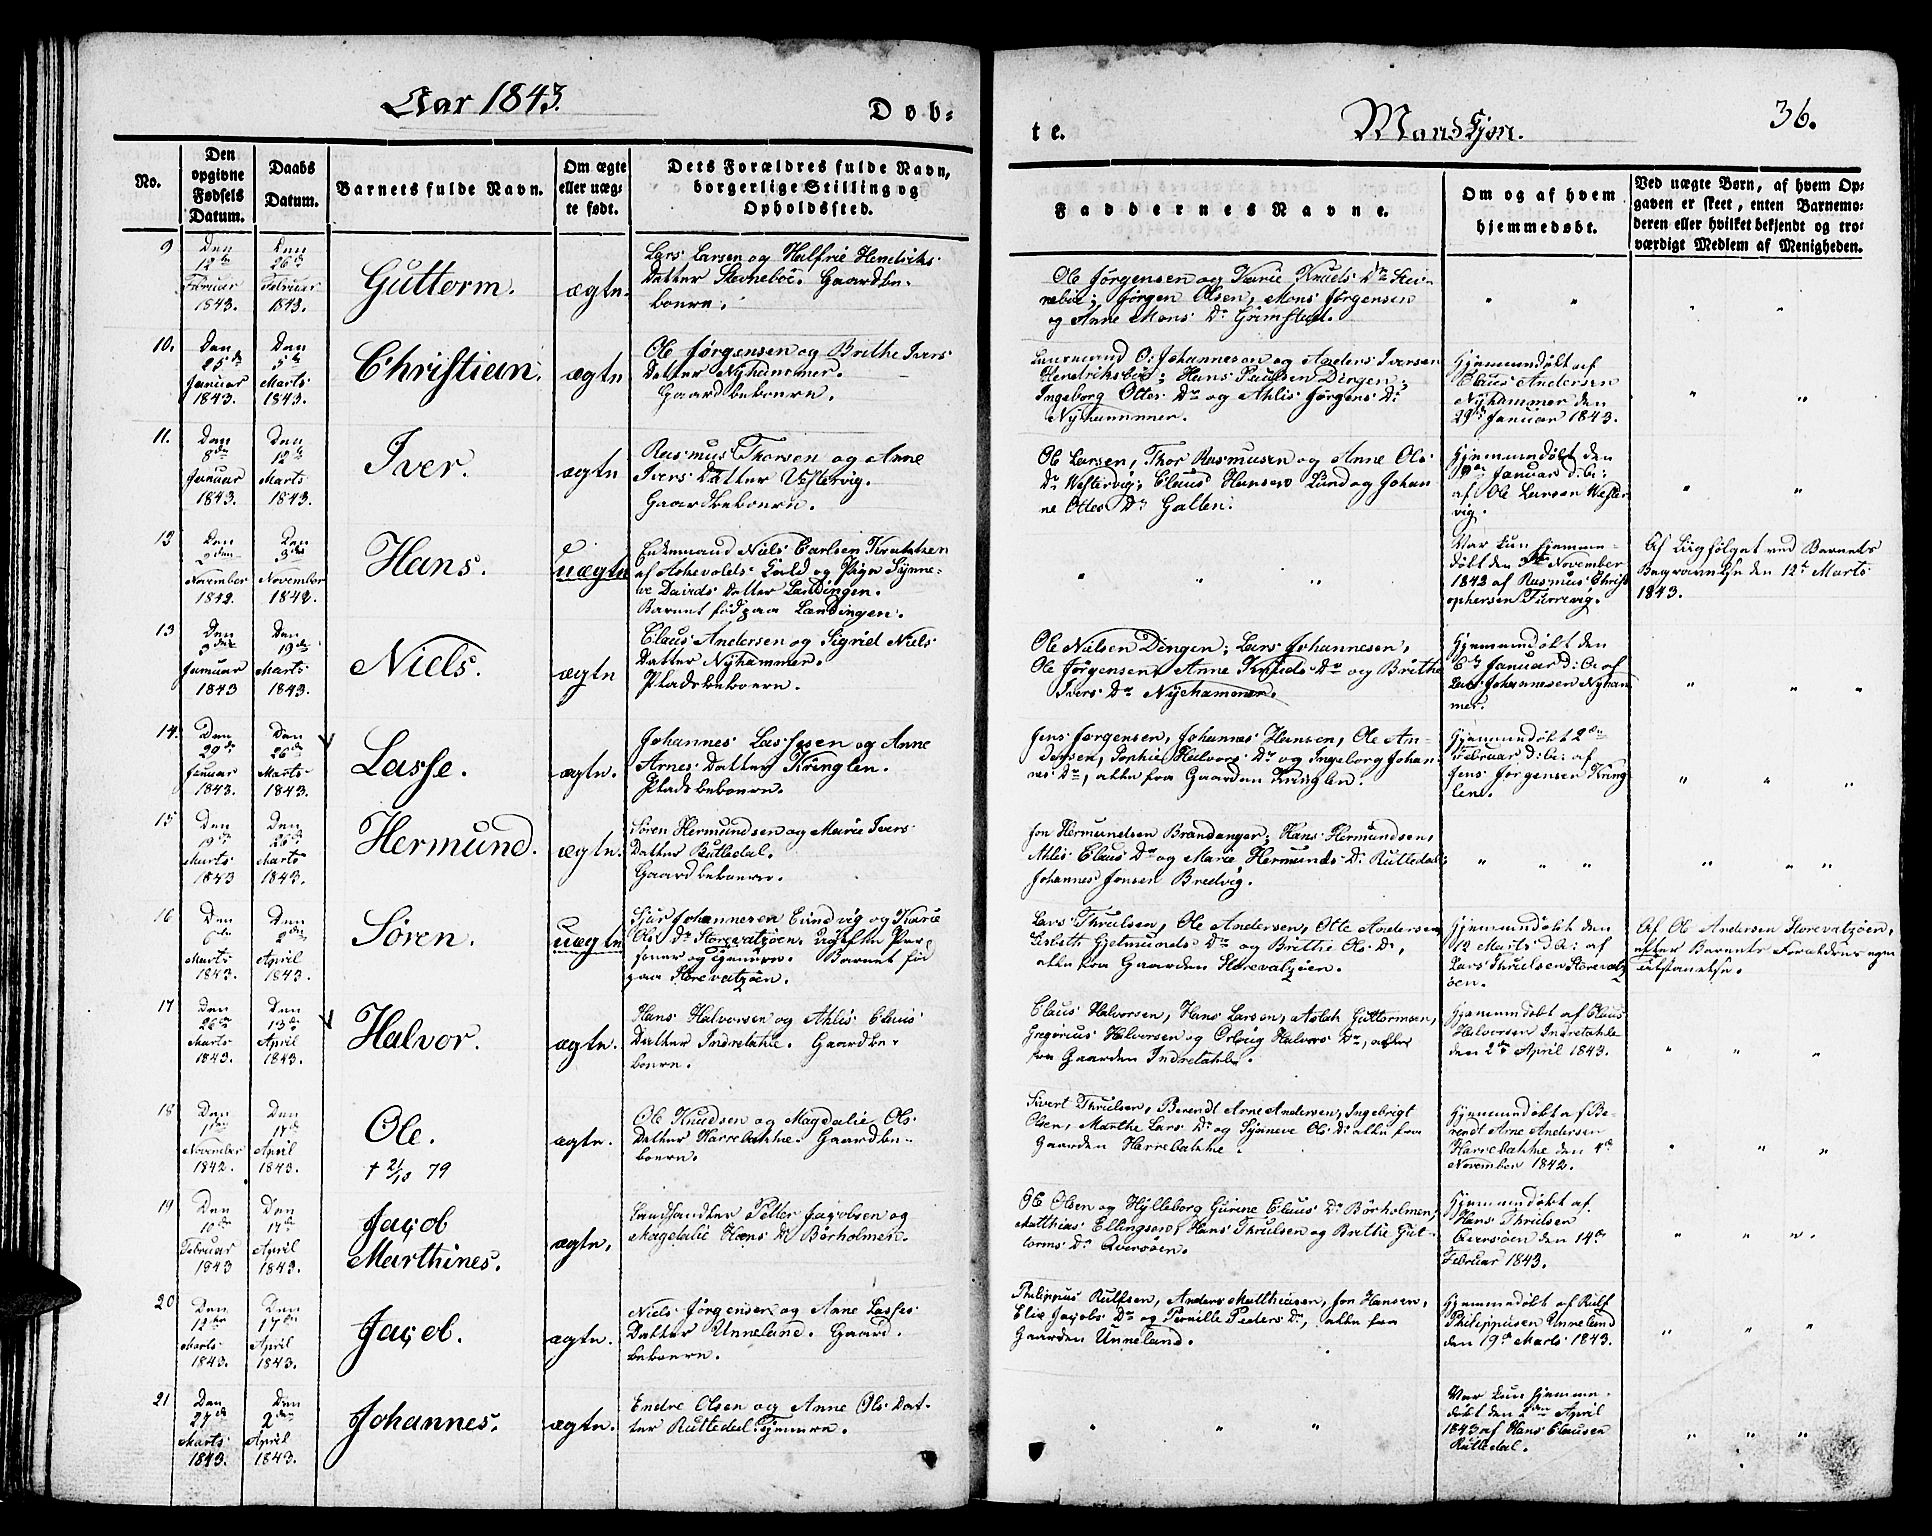 Aar 1843.
Døb=
te.
Mandkjøn.
36.
No.
Den opgivne Fødsels Datum.
Daabs Datum.
Barnets fulde Navn.
Om ægte eller uæg= te født.
Dets Forældres fulde Navn, borgerlige Stilling og Opholdssted.
Faddernes Navne.
Om og af hvem hjemmedøbt.
Ved uægte Børn, af hvem Op= gaven er skeet, enten Barnemo= deren eller hvilket bekjendt og tro= værdigt Medlem af Menigheden.
9
Den 12te Februar 1843.
Den 26de Februar 1843.
Guttorm.
ægte.
Lars Larsen og Hendriks
Datter Steenebøe. Gaardbe-
boere.
Ole Jørgensen og Karie Knuds Dr Stee-
nebøe; Jørgen Olsen, Mons Jørgensen
og Anne Mons Dr Grimstad.
" "
" "
10.
Den 25de Januar 1843.
Den 5te Marts 1843.
Christian.
ægte
Ole Jørgensen og Brithe Ivers
Datter Nyhammer.
Gaardbeboere.
O: Johannesen og Anders Iversen
Hendriksbøe; Hans Paulsen Dingen;
Ingeborg Ottes Dr og Ahlis Jørgens Dr
Nyhammer.
Hjemmedøbt af
Claus Andersen
Nyhammer den
29de Januar 1843.
" "
11.
Den 8de Januar 1843.
Den 12te Marts 1843.
Iver.
ægte
Rasmus Thorsen og Anne
Ivers Datter Vestervig.
Gaardbeboere.
Ole Larsen, Thor Rasmusen og Anne Ols
Dr Westervig; Claus Hansen Lund og Johan
ne Ottes Dr Galten.
Hjemmedøbt den
Januar d: Ae:
af Ole Larsen Wester
vig.
" "
13
Den 2den November 1842.
Den 3die November 1842.
Hans.
uægte
Enkemand Niels Carlsen
af Askevolds Sogn og Pige Synne-
ve Davids Datter Landingen.
Barnet fød paa Landingen.
" " "
Var kun hjemme-
døbt den 3die November
1842 af Rasmus Christ
ophersen Furrevig.
Af Liigfølget ved Barnets
Begravelse den 12te Marts
1843.
13
Den 3die Januar 1843
Den 19de Marts 1843.
Niels.
ægte
Claus Andersen og Sigrid Niels
Datter Nyhammer.
Pladsbeboere.
Ole Nielsen Dingen; Lars Johannesen,
Ole Jørgensen, Anne Knuds Dr og Brithe
Ivers Dr Nyehammer.
Hjemmedøbt den
6te Januar d: Ae af
Lars Johannesen Nyham
mer.
" " "
14.
Den 29de Januar 1843.
Den 26de Marts 1843.
Lasse.
ægte.
Johannes Lassesen og Anne
Arnes Datter Kringlen.
Pladsbeboere.
Jens Jørgensen, Johannes Hansen, Ole An-
dersen, Sophie Halvors Dr og Ingeborg Johan-
nes Dr, alle fra Gaarden Kringlen.
Hjemmedøbt 2den
Februar d: Ae: af
Jens Jørgensen Kring
len.
" " "
15
Den 19de Marts 1843
Den 26de Marts 1843.
Hermund.
ægte.
Søren Hermundsen og Marie Ivers
Datter Rutledal.
Gaardbeboere.
Jon Hermundsen Brandanger; Hans Hermundsen,
Ahlis Claus Dr og Marie Hermunds Dr Rutledal;
Johannes Jonsen Bredvig.
" " "
" " "
16
Den 6te Marts 1843.
Den 2den April 1843.
Søren.
uægte
Sjur Johannesen Eundvig og Karie
Ols Dr Storevatzøen, ugifte Per-
soner og Tjenere. Barnet fød
paa Storevatzøen.
Lars Thruelsen, Ole Andersen, Otte Andersen,
Lisbeth Gjetmunds Dr og Brithe Ols Dr,
alle fra Gaarden Storevatzøen.
Hjemmedøbt den
12 Marts d: Ae: af
Lars Thruelsen Storevatz
øen.
Af Ole Andersen Storevatzøen,
efter Barnets Forældres egen
Udstædelse.
17
Den 26de Marts 1843.
Den 13de April 1843.
Halvor.
ægte.
Hans Halvorsen og Ahlis Claus
Datter Indretahle. Gaardbe-
boere.
Claus Halvorsen, Hans Larsen, Aslak Guttormsen,
Gregorius Halvorsen og Halvors Dr, alle
fra Gaarden Indretahle.
Hjemmedøbt af Claus
Halvorsen Indretahle
den 2den April 1843.
" " "
18
Den 1ste November 1842.
Den 17de April 1843.
Ole.
† 2/10 79
ægte.
Ole Knudsen og Magdalie Ols
Datter Harrebakke. Gaardbe-
boere.
Sivert Thruelsen, Berendt Arne Andersen, Ingebrigt
Olsen, Marthe Lars Dr og Synneve Ols Dr alle fra
Gaarden Herrebakke.
Hjemmedøbt af Be-
rendt Arne Andersen
Harrebakke den 4de
November 1842.
" " "
19
Den 10de Februar 1843
Den 17de April 1843.
Jacob
Marthines.
ægte.
Landhandler Petter Jacobsen og
Magdalie Hans Dr Børholmen.
Ole Olsen og Hylleborg Gurine Claus Dr Børholmen,
Matthias Ellingsen, Hans Thruelsen og Brithe Gut-
torms Dr Qversøen.
Hjemmedøbt af
Hans Thruelsen
Qversøen den 14de
Februar 1843.
" " "
20
Den 12te Marts 1843.
Den 17de April 1843.
Jacob.
ægte.
Niels Jørgensen og Anne Lasses
Datter Unneland. Gaard-
beboere.
Philippus Rulfsen, Anders Matthiasen, Jon Hansen,
Elie Jacobs Dr og Pernille Peders Dr, alle fra
Gaarden Unneland.
Hjemmedøbt af Rulf
Philippusen Unneland
den 19de Marts 1843.
" " "
21
Den 27de Marts 1843.
Den 2den April 1843.
Johannes.
ægte.
Endre Olsen og Anne Ols Dat-
ter Rutledal Tjenere.
" " "
Var kun hjemme-
døbt den 2den April
1843 af Hans Clausen
Rutledal.
" " "